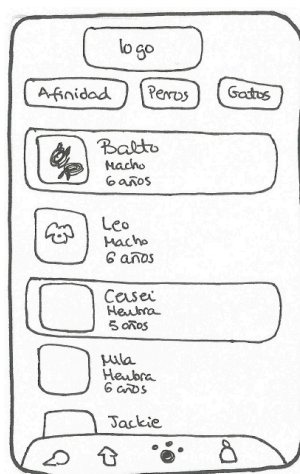 logo
Afinidad
Perros
Gatos
Balto
Macho
6 años
Leo
Macho
6 años
Cersei
Hembra
5 años
Mila
Hembra
6 años
Jackie